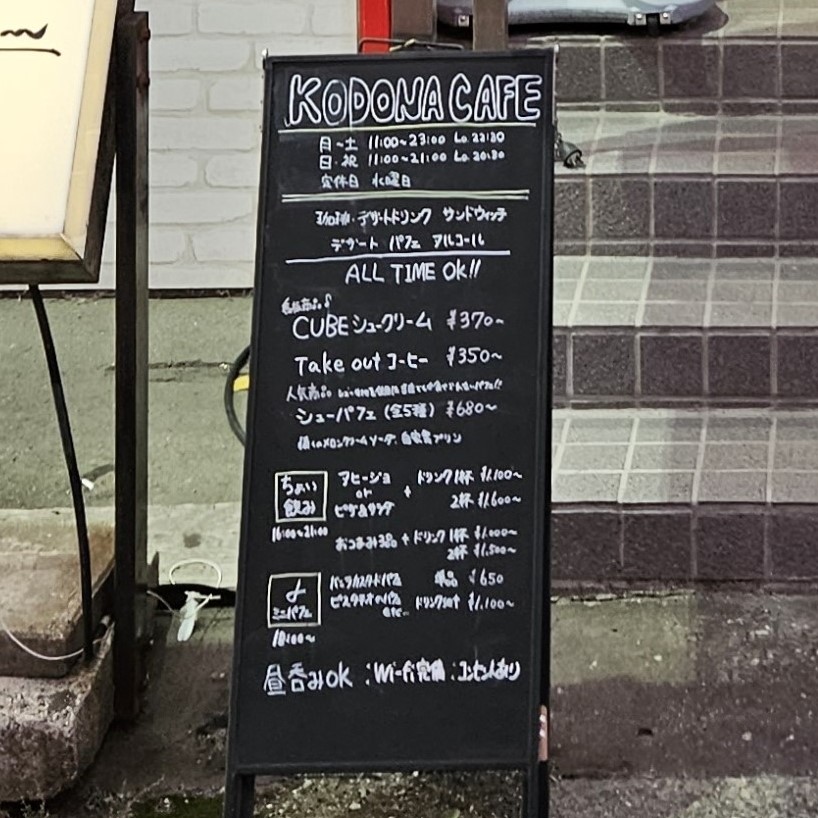 KODONA CAFE
月~土 11:00~23:00 Lo.22:30
日・祝 11:00~21:00 Lo.20:30
定休日 水曜日
デザートドリンク サンドウィッチ
デザート パフェ アルコール
ALL TIME OK!!
CUBEシュークリーム ¥370~
Take out コーヒー ¥350~
人気商品
シューパフェ(全5種) ¥680~
メロンクリームソーダ、自家製プリン
ちょい飲み
16:00~21:00
アヒージョ
or
+ ドリンク1杯 ¥1,100~
2杯 ¥1,600~
おつまみ3品 + ドリンク1杯 ¥1,000~
2杯 ¥1,500~
ミニパフェ
18:00~
単品 ¥650
etc… ドリンクset ¥1,100~
昼呑みOK :Wi-Fi完備:コンセントあり